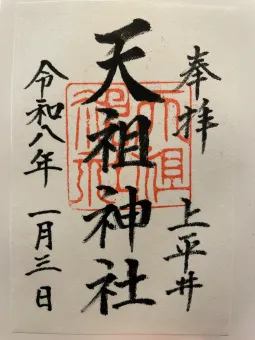 奉拝 上平井
天祖神社
令和八年 一月三日